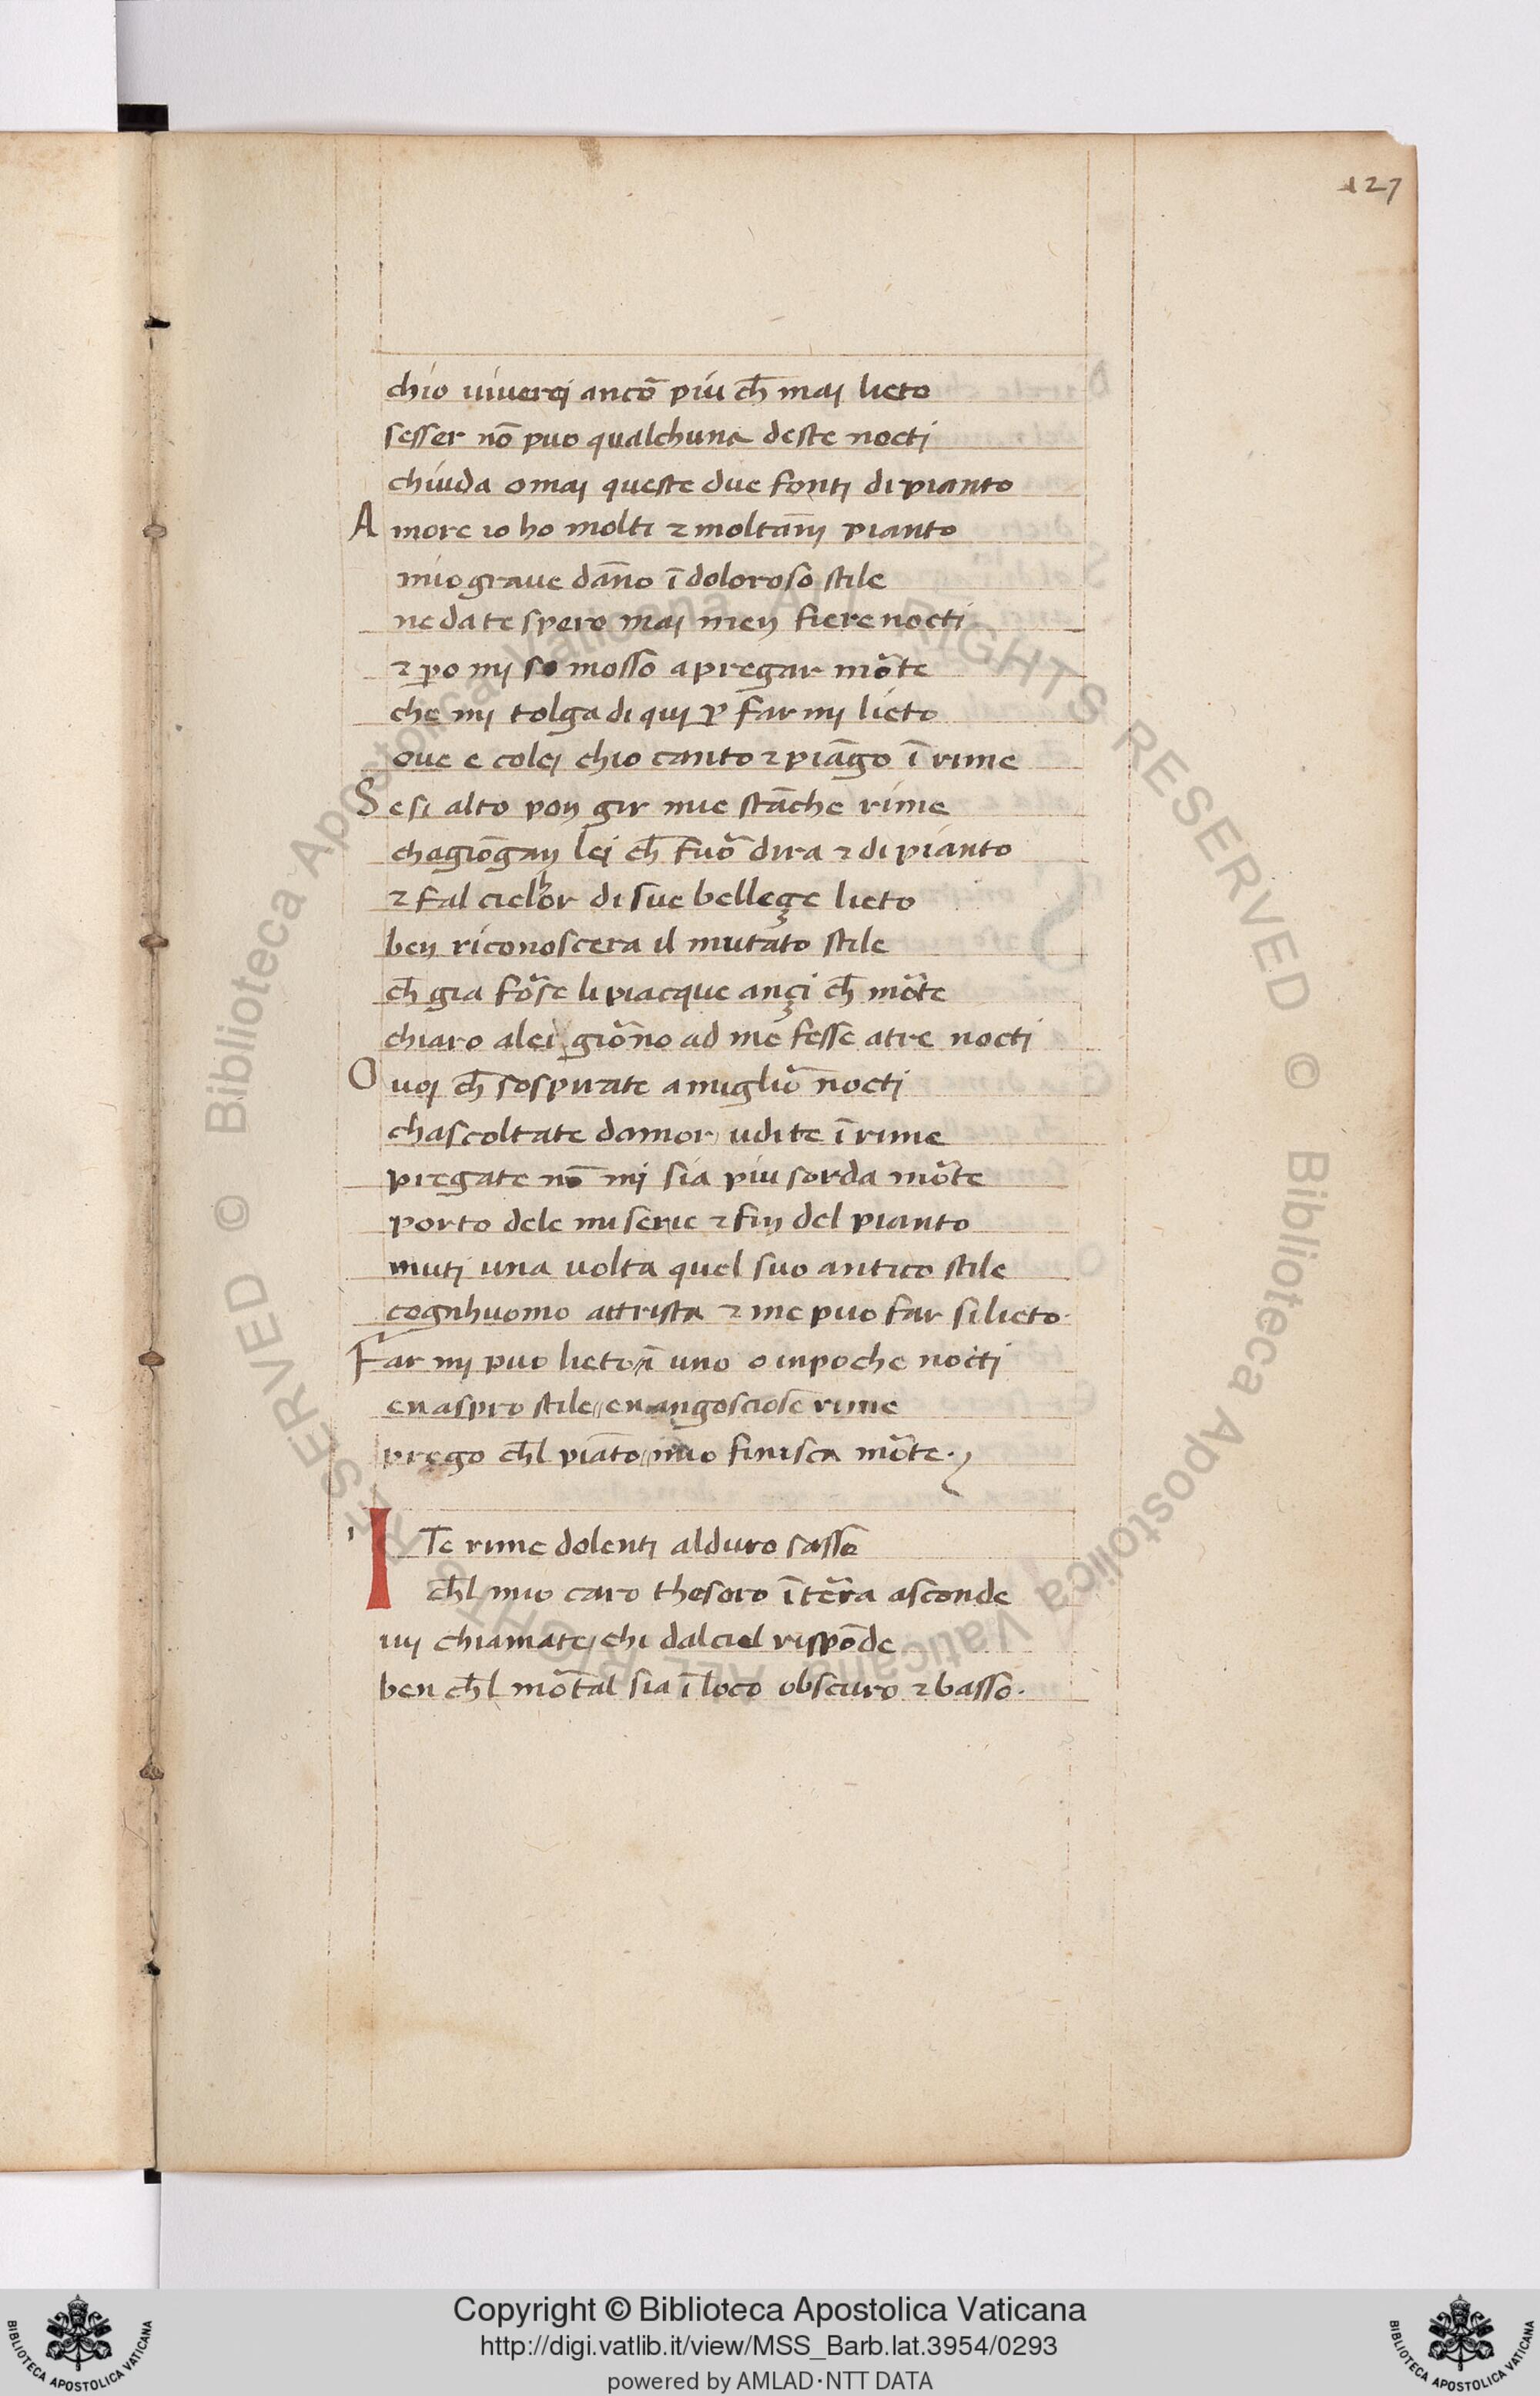 127
chio uiuerej ancō piu ch̄ maj lieto
sesser nō puo qualchuna deste noctj
chiuda omaj queste due fontj di pianto
Amore io ho molti ⁊ moltān̄j pianto
mio graue dān̄o ī doloroso stile
ne da te spero maj men fiere noctj
⁊ ꝑo mj so mosso a pregar mōte
che mj tolga di quj ꝑ far mj lieto
oue e colej chio canto ⁊ piāgo ī rime
Se si alto pon gir mie stāche rime
chagiōgan lej ch̄ fuō dira ⁊ di pianto
⁊ fal ciel hor di sue belleçe lieto
ben riconoscera il mutato stile
ch̄ gia fōse li piacque ançi ch̄ mōte
chiaro alei giōno ad me fesse atre noctj
O uoj ch̄ sospirate a migliō noctj
chascoltate damor udite ī rime
pregate nō mj sia piu sorda mōte
porto dele miserie ⁊ fin del pianto
mutj una uolta quel suo antico stile
cognhuomo attrista ⁊ me puo far si lieto.
Far mj puo lieto ī uno o in poche noctj
en aspro stile en angosciose rime
prego ch̄l piāto mio finisca mōte.
ITe rime dolentj al duro sasso
ch̄l mio caro thesoro ī tēra asconde
iuj chiamate chi dal ciel rispōde
ben ch̄l mōtal sia ī loco obscuro ⁊ basso.
© Biblioteca Apostolica Vaticana ALL RIGHTS RESERVED © Biblioteca Apostolica Vaticana ALL RIGHTS RESERVED
Copyright © Biblioteca Apostolica Vaticana
http://digi.vatlib.it/view/MSS_Barb.lat.3954/0293
powered by AMLAD·NTT DATA
BIBLIOTECA APOSTOLICA VATICANA
BIBLIOTECA APOSTOLICA VATICANA